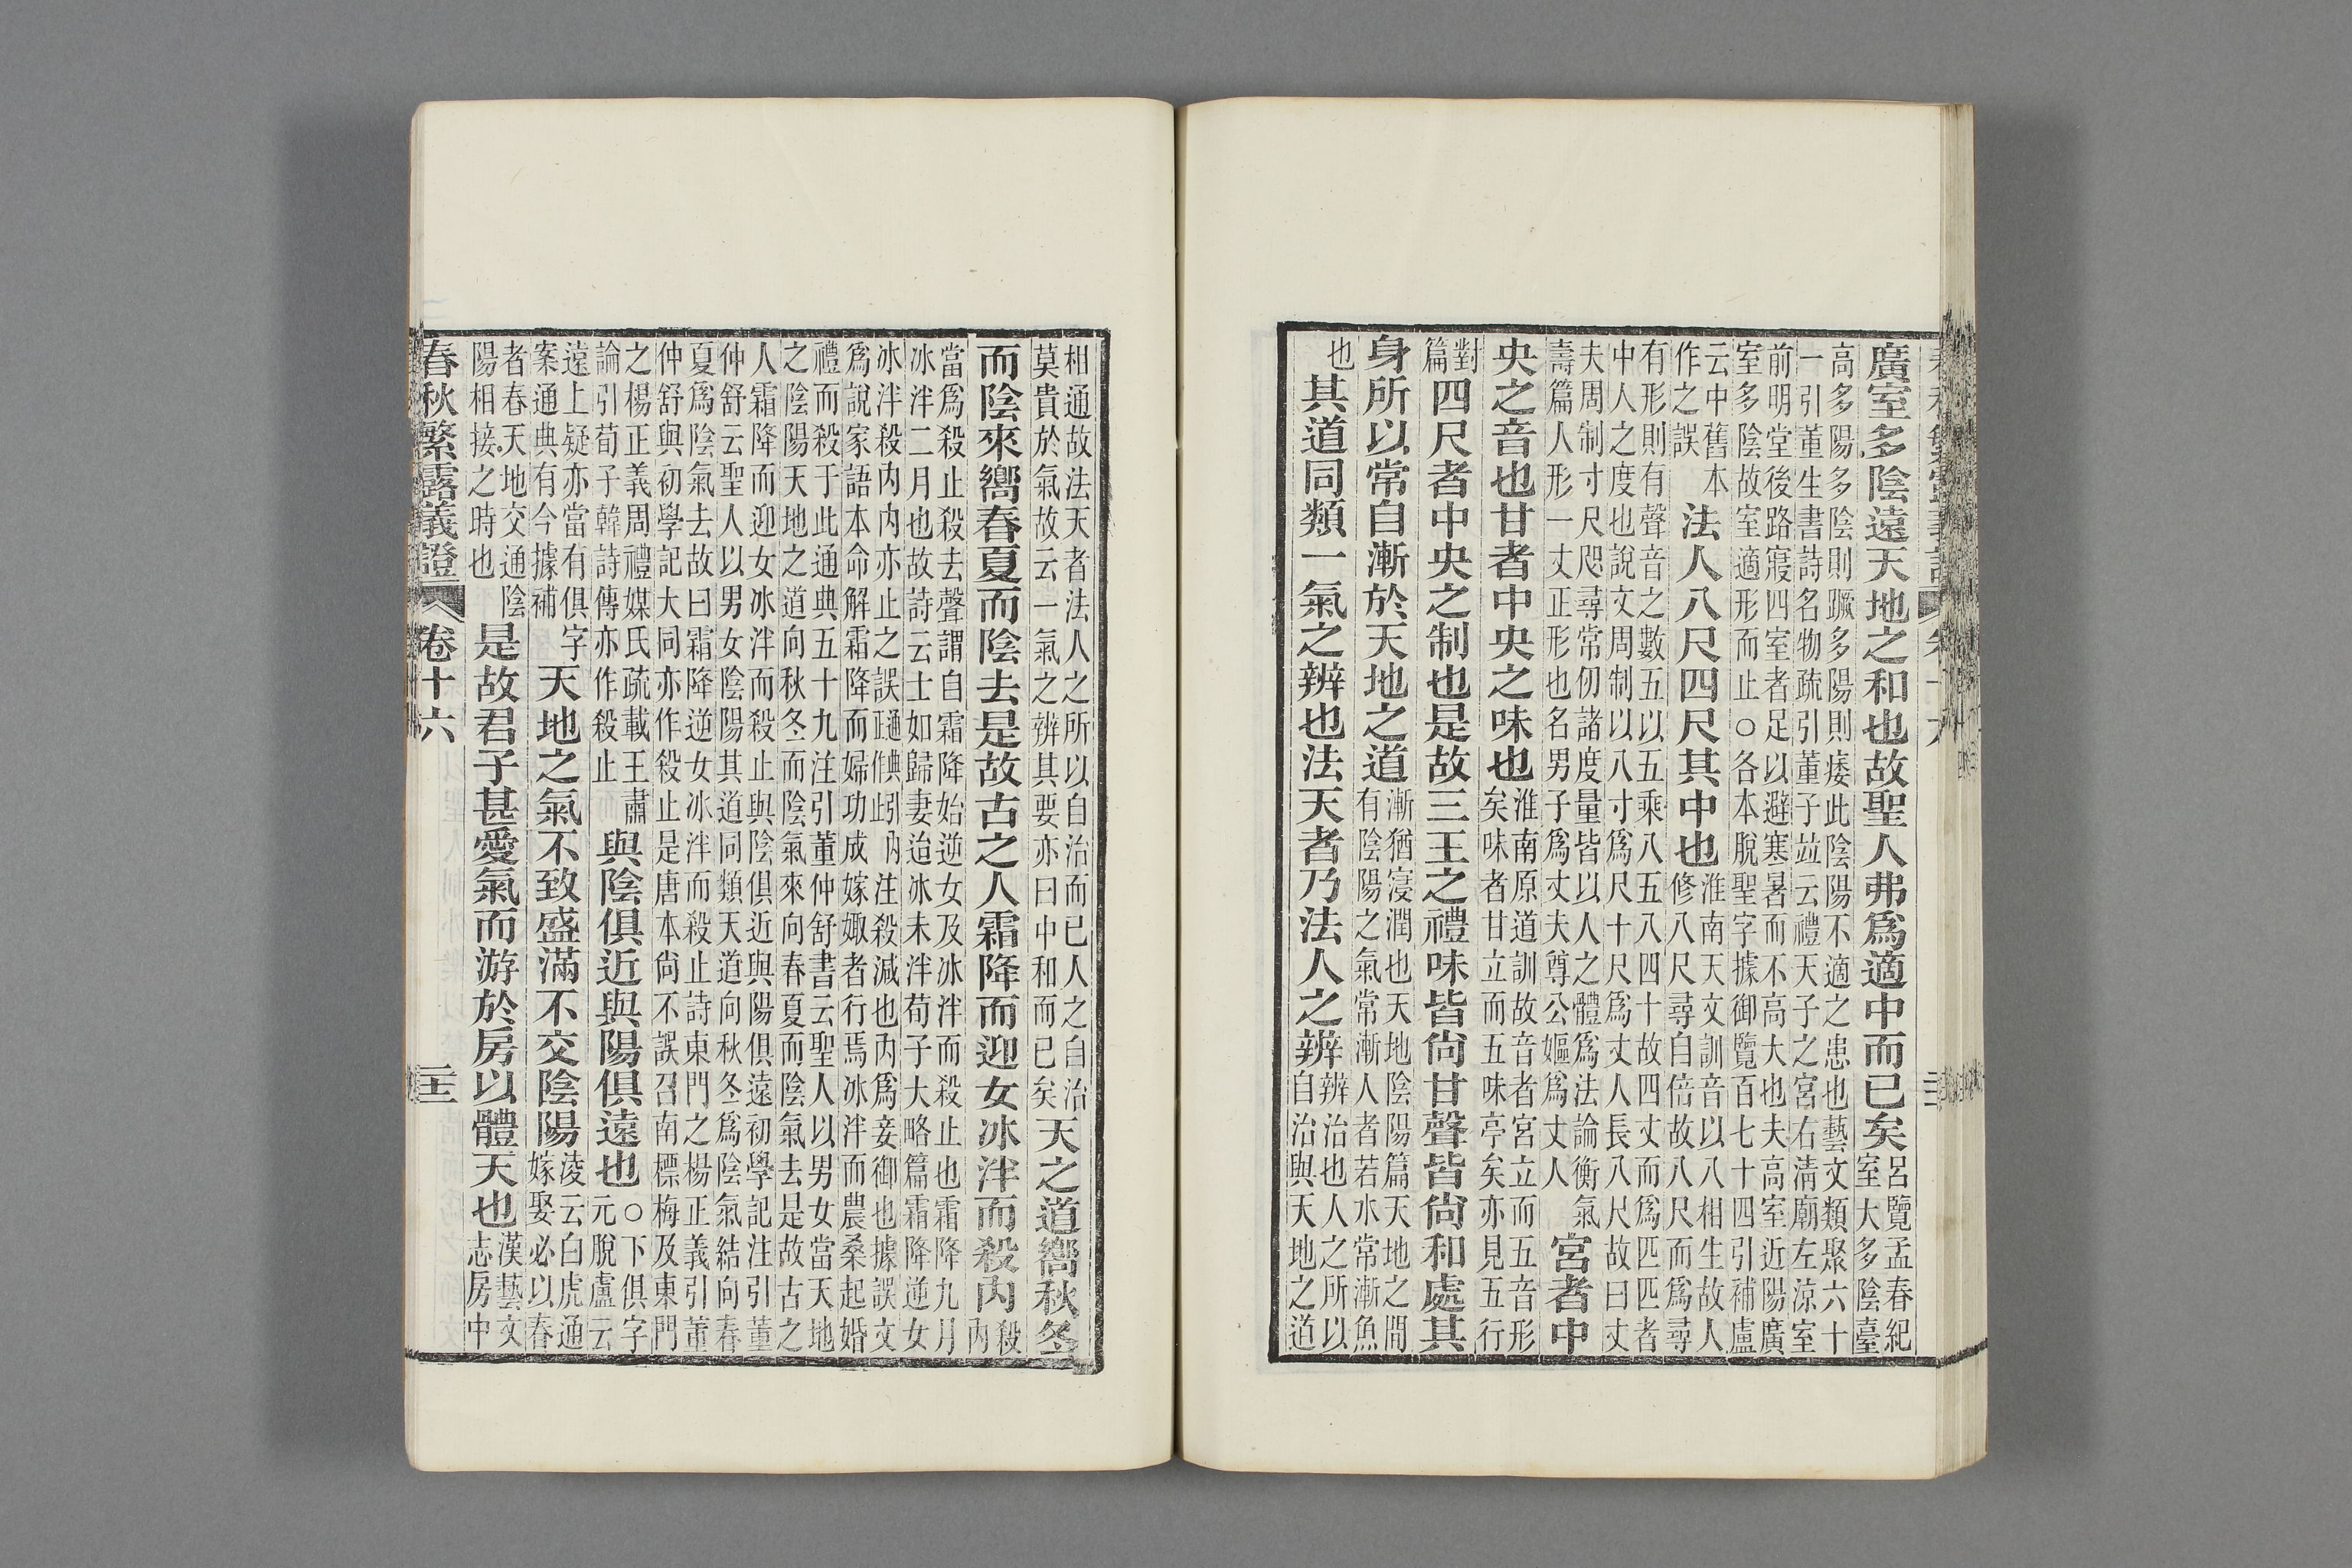 廣室多陰遠天地之和也故聖人弗爲適中而已矣呂覽孟春紀室大多陰臺
高多陽多陰則蹶多陽則痿此陰陽不適之患也藝文類聚六十
一引董生書詩名物疏引董子竝云禮天子之宮右清廟左涼室
前明堂後路寢四室者足以避寒暑而不高大也夫高室近陽廣
室多陰故室適形而止○各本脫聖字據御覽百七十四引補盧
云中舊本作之誤法人八尺四尺其中也淮南天文訓音以八相生故人修八尺尋自倍故八尺而爲尋
有形則有聲音之數五以五乘八五八四十故四丈而爲匹匹者
中人之度也說文周制以八寸爲尺十尺爲丈人長八尺故曰丈
夫周制寸尺咫尋常仞諸度量皆以人之體爲法論衡氣壽篇人形一丈正形也名男子爲丈夫尊公嫗爲丈人宮者中
央之音也甘者中央之味也淮南原道訓故音者宮立而五音形矣味者甘立而五味亭矣亦見五行
對篇四尺者中央之制也是故三王之禮味皆尙甘聲皆尙和處其
身所以常自漸於天地之道漸猶寖潤也天地陰陽篇天地之閒有陰陽之氣常漸人者若水常漸魚
也其道同類一氣之辨也法天者乃法人之辨辨治也人之所以自治與天地之道
相通故法天者法人之所以自治而已人之自治莫貴於氣故云一氣之辨其要亦曰中和而已矣天之道嚮秋冬
而陰來嚮春夏而陰去是故古之人霜降而迎女冰泮而殺內殺內
當爲殺止殺去聲謂自霜降始逆女及冰泮而殺止也霜降九月
冰泮二月也故詩云士如歸妻迨冰未泮荀子大略篇霜降逆女
冰泮殺內內亦止之誤通典引內正作此注殺減也內爲妾御也據誤文
爲說家語本命解霜降而婦功成嫁娵者行焉冰泮而農桑起婚
禮而殺于此通典五十九注引董仲舒書云聖人以男女當天地
之陰陽天地之道向秋冬而陰氣來向春夏而陰氣去是故古之
人霜降而迎女冰泮而殺止與陰俱近與陽俱遠初學記注引董
仲舒云聖人以男女陰陽其道同類天道向秋冬爲陰氣結向春
夏爲陰氣去故曰霜降逆女冰泮而殺止詩東門之楊正義引董
仲舒與初學記大同亦作殺止是唐本尙不誤召南標梅及東門
之楊正義周禮媒氏疏載王肅論引荀子韓詩傳亦作殺止與陰俱近與陽俱遠也○下俱字元脫盧云
遠上疑亦當有俱字案通典有今據補天地之氣不致盛滿不交陰陽淩云白虎通嫁娶必以春
者春天地交通陰陽相接之時也是故君子甚愛氣而游於房以體天也漢藝文志房中
春秋繁露義證 卷十六